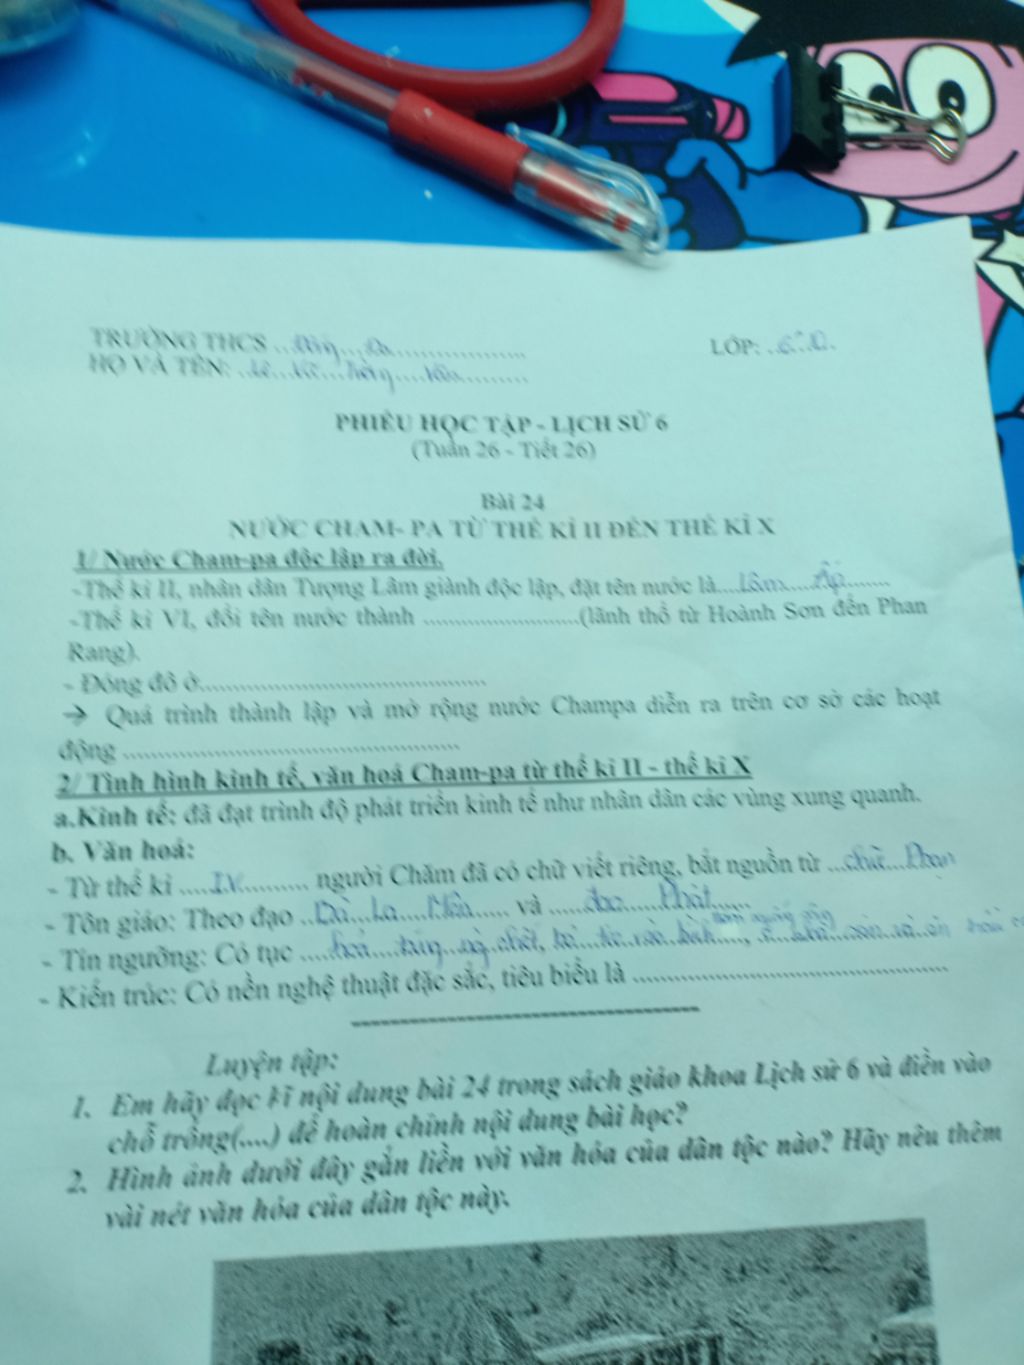 TRƯỜNG THCS ...Đống...Đa..................
LỚP: ..6.
HỌ VÀ TÊN: ..Lê...
PHIẾU HỌC TẬP - LỊCH SỬ 6
(Tuần 26 - Tiết 26)
Bài 24
NƯỚC CHAM- PA TỪ THẾ KỈ II ĐẾN THẾ KỈ X
1/ Nước Cham-pa độc lập ra đời.
-Thế kỉ II, nhân dân Tượng Lâm giành độc lập, đặt tên nước là....Lâm....Ấp.......
-Thế kỉ VI, đổi tên nước thành .........................(lãnh thổ từ Hoành Sơn đến Phan
Rang).
- Đóng đô ở............................................
→ Quá trình thành lập và mở rộng nước Champa diễn ra trên cơ sở các hoạt
động ................................................
2/ Tình hình kinh tế, văn hoá Cham-pa từ thế kỉ II - thế kỉ X
a.Kinh tế: đã đạt trình độ phát triển kinh tế như nhân dân các vùng xung quanh.
b. Văn hoá:
- Từ thế kỉ .....IV.......... người Chăm đã có chữ viết riêng, bắt nguồn từ ...chữ...Phạn
- Tôn giáo: Theo đạo ..Bà...La....Môn...... và ......đạo......Phật......
- Tín ngưỡng: Có tục ....hoả....táng...người chết, bỏ...tro...vào...bình....,
- Kiến trúc: Có nền nghệ thuật đặc sắc, tiêu biểu là ................................................
Luyện tập:
1. Em hãy đọc kĩ nội dung bài 24 trong sách giáo khoa Lịch sử 6 và điền vào
chỗ trống(....) để hoàn chỉnh nội dung bài học?
2. Hình ảnh dưới đây gắn liền với văn hóa của dân tộc nào? Hãy nêu thêm
vài nét văn hóa của dân tộc này.